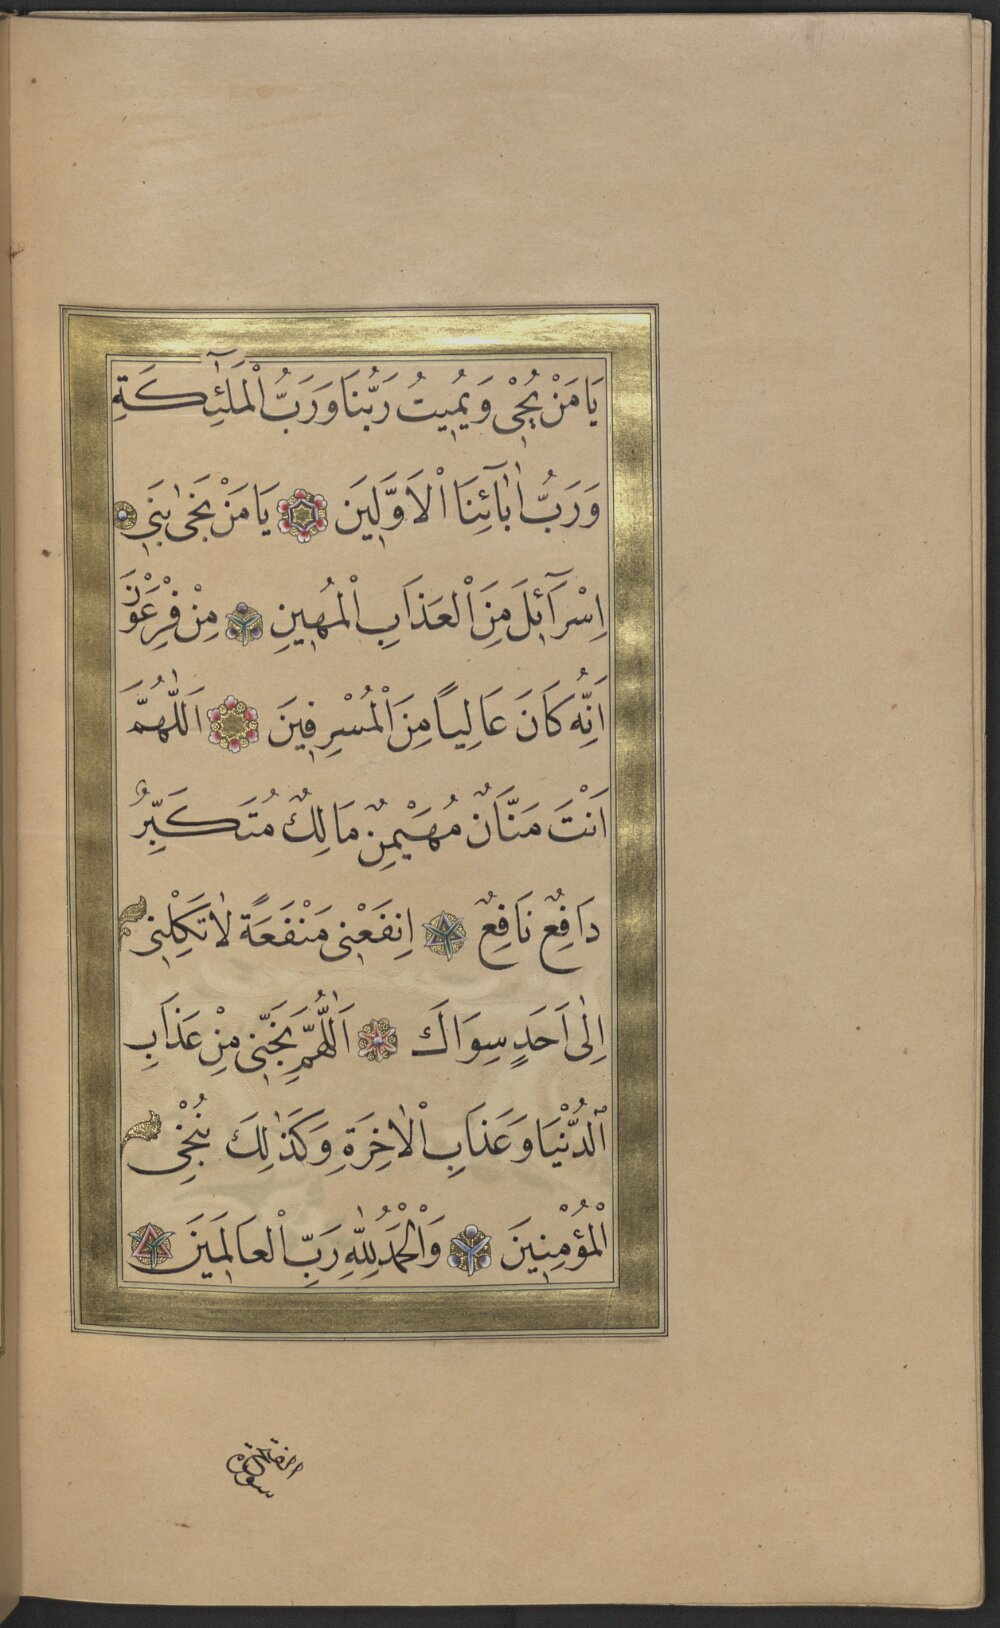 يَا مَنْ يُحْيِى وَيُمِيتُ رَبُّنَا وَرَبُّ الْمَلٰٓئِكَةِ
وَرَبُّ اٰبَآئِنَا الْاَوَّلِينَ يَا مَنْ نَجٰى بَنِى
اِسْرَآئِلَ مِنَ الْعَذَابِ الْمُهِينِ مِنْ فِرْعَوْنَ
اَنَّهُ كَانَ عَالِياً مِنَ الْمُسْرِفِينَ اَللّٰهُمَّ
اَنْتَ مَنَّانٌ مُهَيْمِنٌ مَالِكٌ مُتَكَبِّرٌ
دَافِعٌ نَافِعٌ اِنفَعْنِى مَنْفَعَةً لَا تَكِلْنِى
اِلٰى اَحَدٍ سِوَاكَ اَللّٰهُمَّ نَجِّنِى مِنْ عَذَابِ
الدُّنْيَا وَعَذَابِ الْاٰخِرَةِ وَكَذٰلِكَ نُنْجِى
الْمُؤْمِنِينَ وَالْحَمْدُ لِلّٰهِ رَبِّ الْعَالَمِينَ
سورة الفتح